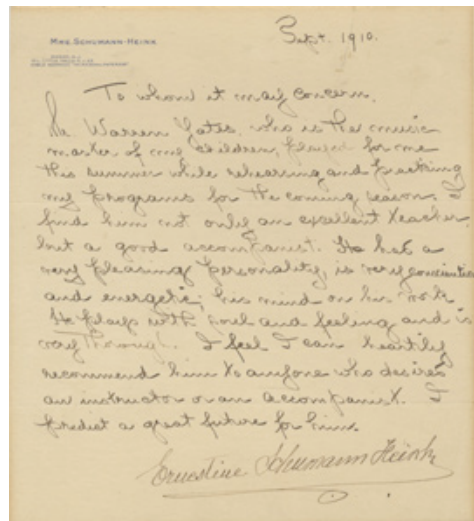 MME. SCHUMANN-HEINK
Sept. 1910.
To whom it may concern,
Mr Warren Yates, who is the music
master of my children, played for me
this summer while rehearsing and practising
my programs for the coming season. I
find him not only an excellent teacher,
but a good accompanist. He has a
very pleasing personality, is very
and energetic; his mind on his work
He plays with soul and feeling and is
very thorough. I feel I can heartily
recommend him to anyone who desires
an instructor or an accompanist. I
predict a great future for him.
Ernestine Schumann Heink